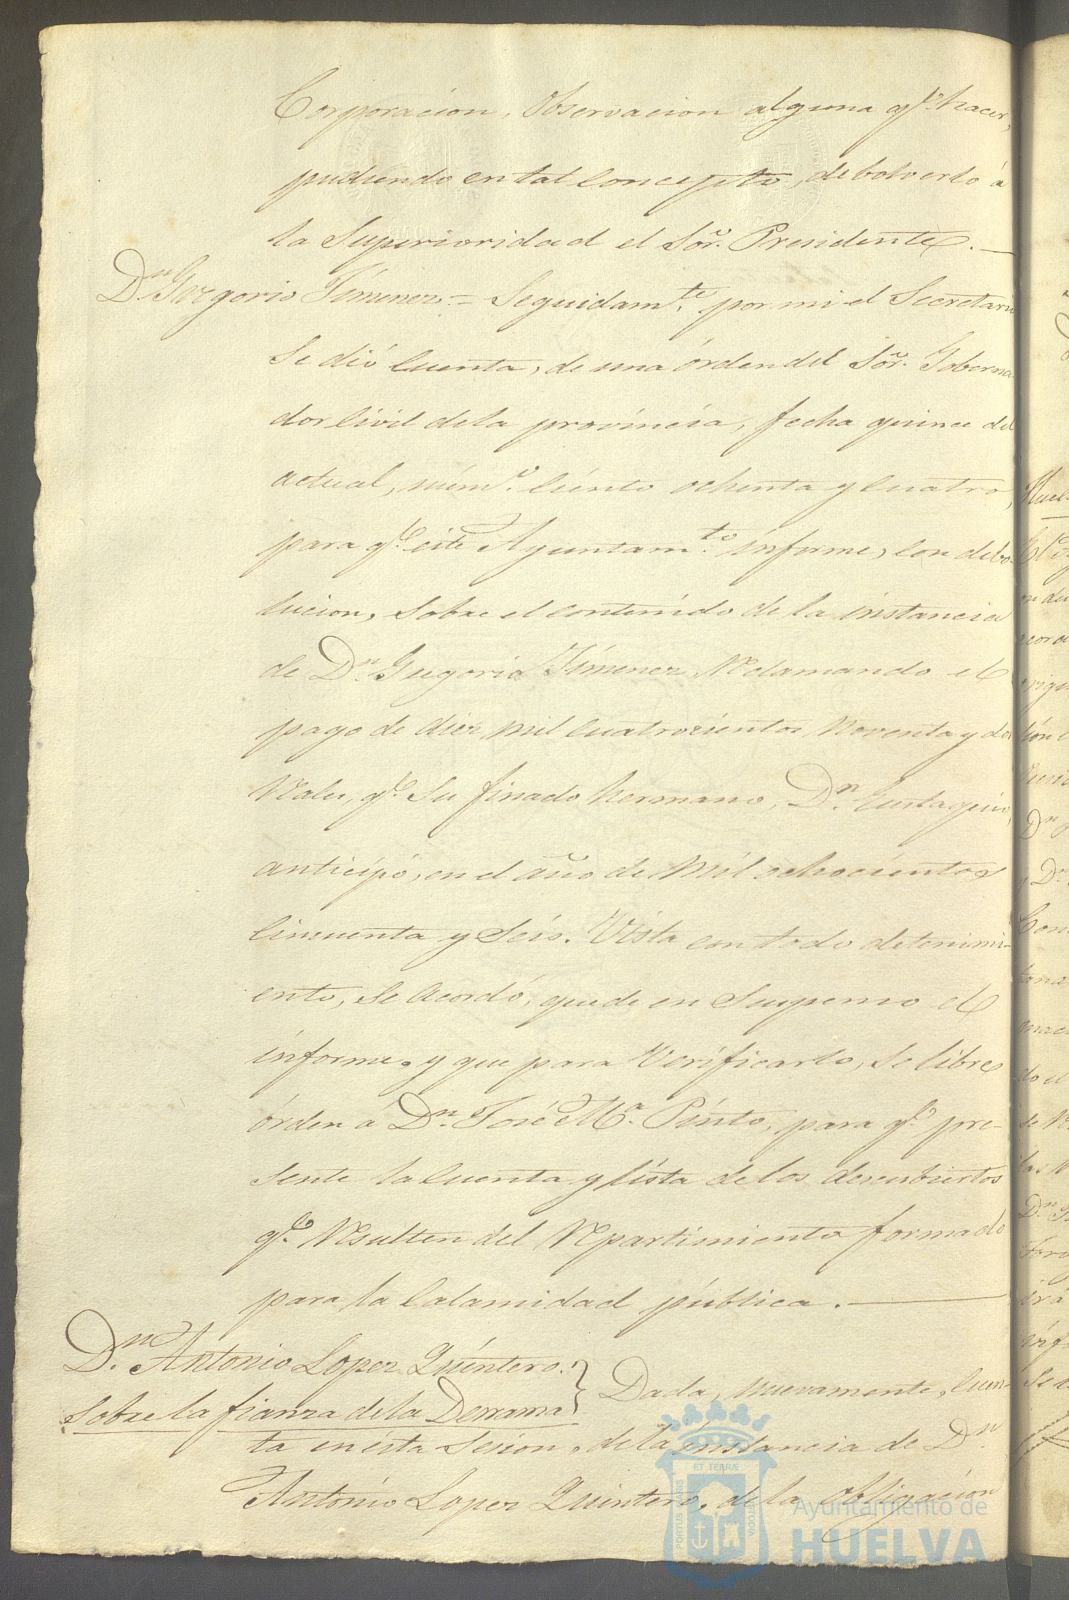 Corporacion, Observacion alguna qe. hacer,
pudiendo en tal Concepto, debolverlo á
la Superioridad el Sor. Presidente. —
Dn. Gregorio Jimenez = Seguidamte. por mi el Secretario
Se dió Cuenta, de una órden del Sor. Goberna
dor Civil de la provincia, fecha quince del
actual, númo. Ciento ochenta y Cuatro,
para qe. este Ayuntamto. informe, con debo-
lucion, Sobre el contenido de la instancia
de Dn. Gregorio Jimenez, Reclamando el
pago de diez mil Cuatrocientos Noventa y dos
Reales, qe. Su finado hermano, Dn. Eustaquio,
anticipó, en el año de Mil ochocientos
Cincuenta y Seis. Vista con todo detenimi-
ento, Se Acordó, quede en Suspenso el
informe, y que para Verificarlo, Se libre
órden á Dn. José Ma. Pinto, para qe. pre-
sente la Cuenta y lista de los descubiertos
qe. Resulten del Repartimiento formado
para la Calamidad pública. —
Dn. Antonio Lopez Quintero. }
Sobre la fianza de la Derrama
Dada, nuevamente, Cuen-
ta en ésta Sesion, de la instancia de Dn.
Antonio Lopez Quintero, de la obligación
PORTUS MARIS
ET TERRÆ
CUSTODIA
Ayuntamiento de
HUELVA